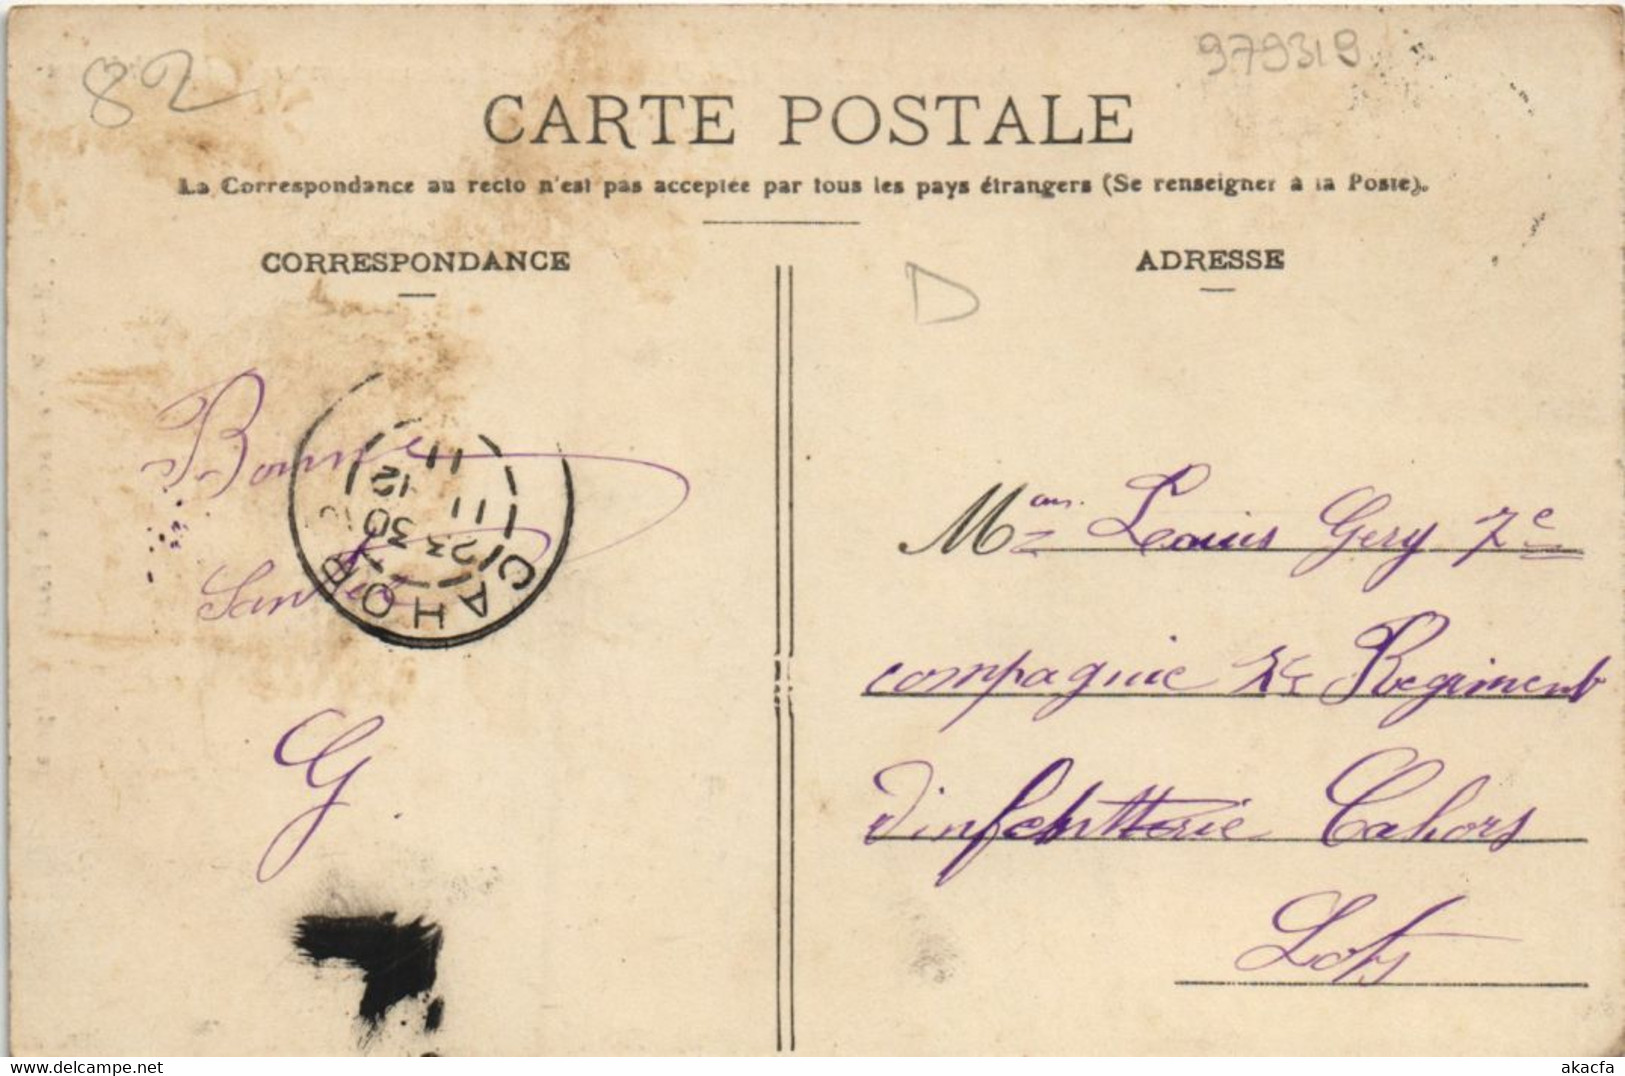 82
979319
CARTE POSTALE
La Correspondance au recto n'est pas acceptée par tous les pays étrangers (Se renseigner à la Poste).
CORRESPONDANCE
ADRESSE
D
Bonne
Santée
G.
CAHORS
23 30
11
12
11
Mr Louis Gery 7e
compagnie Regiment
d'infentterie Cahors
Lots
akacfa